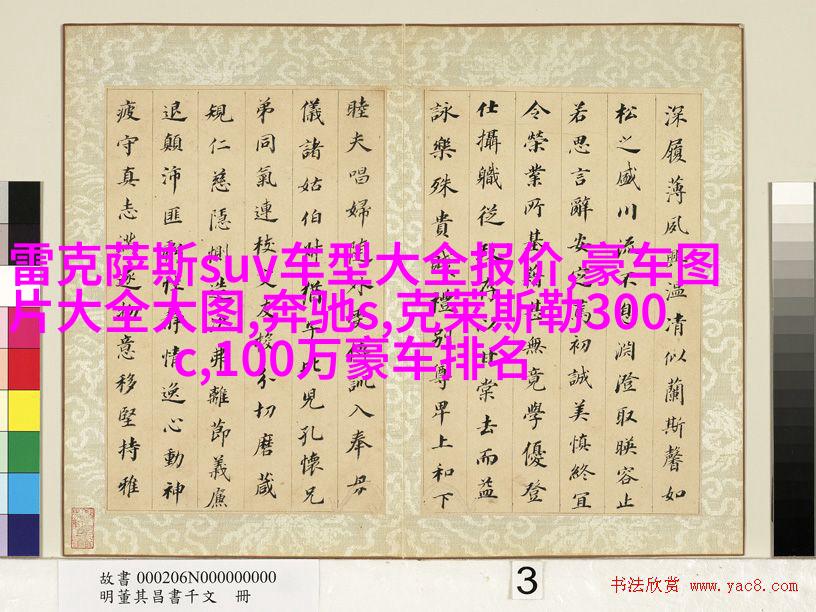 深履薄夙興溫清似蘭斯馨如
松之盛川流不息淵澄取暎容止
若思言辭安定篤初誠美慎終宜
令榮業所基籍甚無竟學優登
仕攝職從政存以甘棠去而益
詠樂殊貴賤禮別尊卑上和下
睦夫唱婦隨外受傅訓入奉母
儀諸姑伯叔猶子比兒孔懷兄
弟同氣連枝交友投分切磨箴
規仁慈隱惻造次弗離節義廉
退顛沛匪虧性靜情逸心動神
疲守真志滿逐物意移堅持雅
雷克萨斯suv车型大全报价,豪车图
片大全大图,奔驰s,克莱斯勒300
c,100万豪车排名
故書 000206N000000000
明董其昌書千文 冊
3
书法欣赏 www.yac8.com